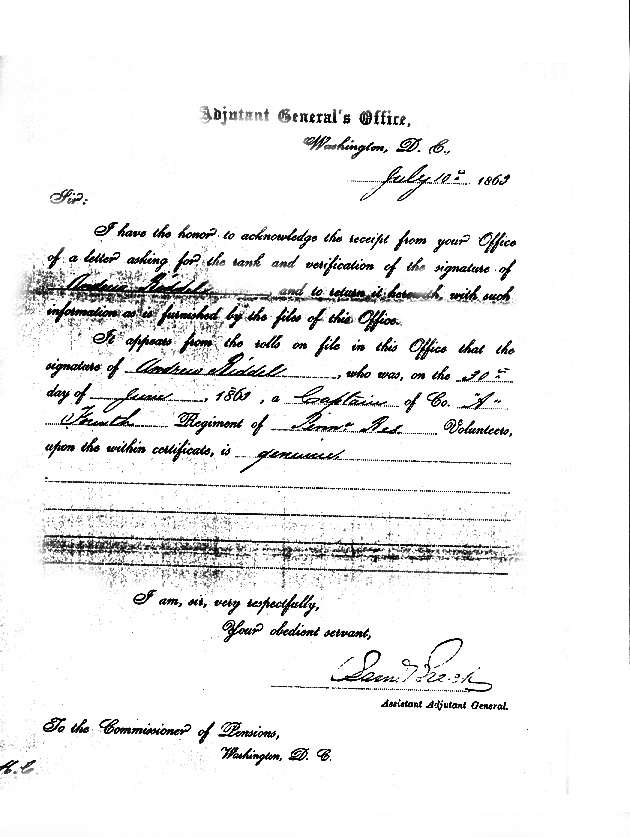 Adjutant General's Office,
Washington, D. C.,
July 10th 1863
Sir:
I have the honor to acknowledge the receipt from your Office
of a letter asking for the rank and verification of the signature of
Andrew Riddel and to return it herewith, with such
information as is furnished by the files of this Office.
It appears from the rolls on file in this Office that the
signature of Andrew Riddel, who was, on the 30th
day of June, 1863, a Captain of Co. "A"
Fourth Regiment of Penna Res Volunteers,
upon the within certificate, is genuine.
I am, sir, very respectfully,
Your obedient servant,
Sam Breck
Assistant Adjutant General.
To the Commissioner of Pensions,
Washington, D. C.